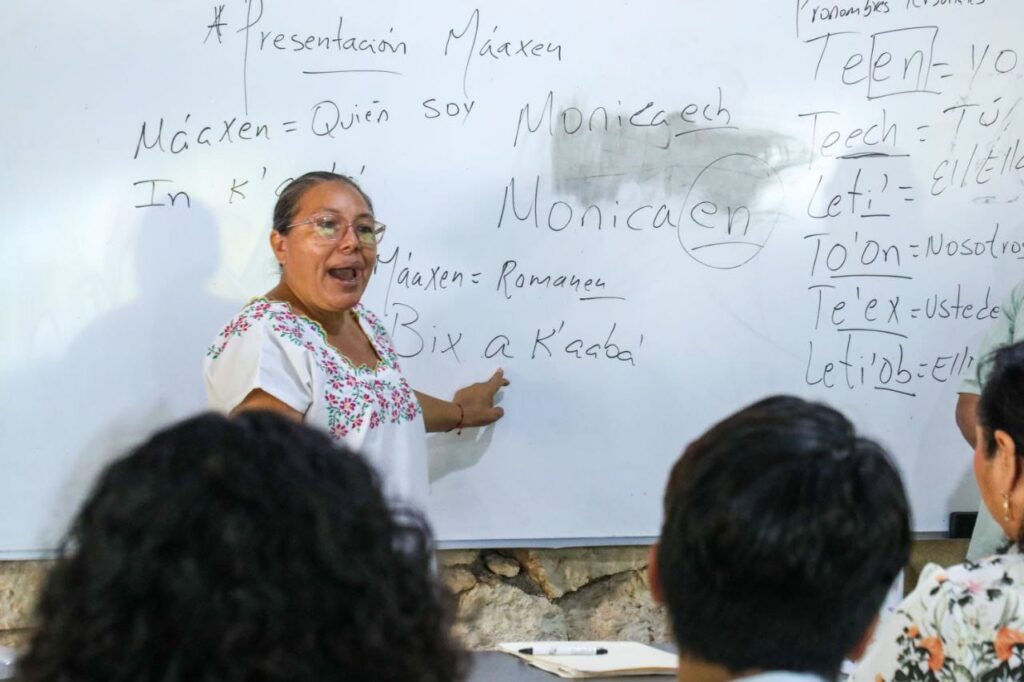 * Presentación Máaxen
Máaxen = Quién soy
In
Monicaech
Monicaen
Máaxen = Romanen
Bix a K'aabá
Pronombres Personales
Teen = Yo
Teech = Tú/
Leti' = Él/Ella
To'on = Nosotros
Te'ex = Ustede
Leti'ob = Ella